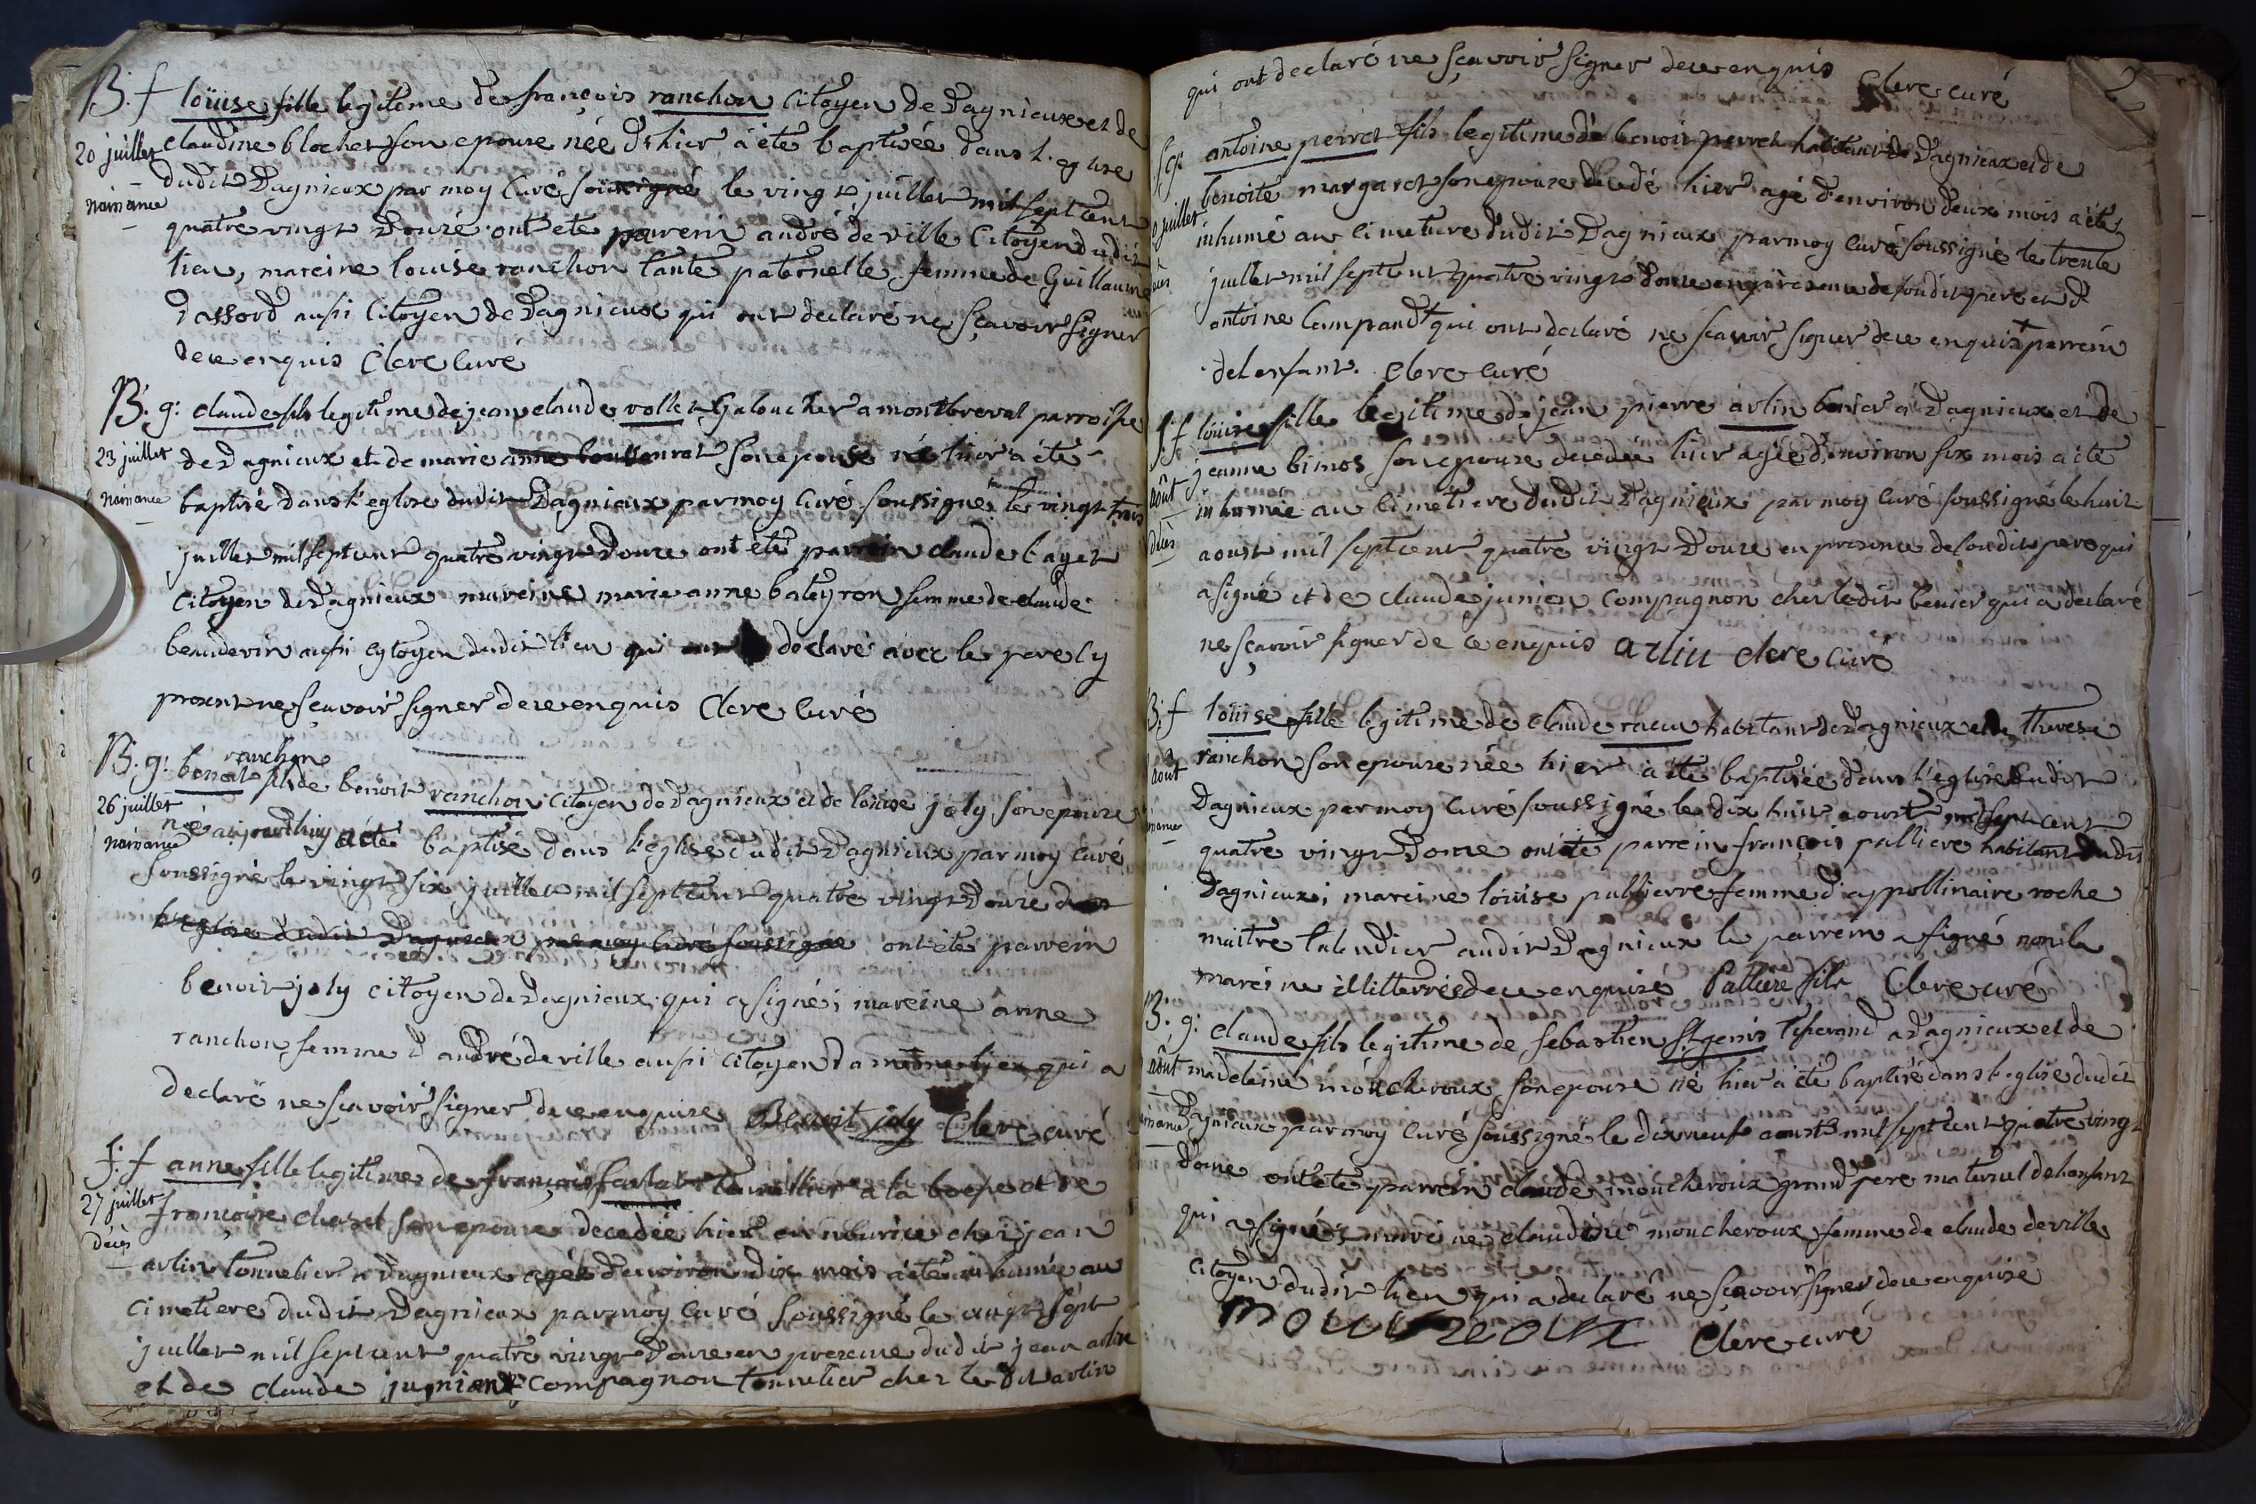 B. f louise fille legitime de françois ranchon citoyen de Dagnieux et de
20 juillet claudine blochet son epouse née d'hier a été baptisée dans l'eglise
naissance dudit Dagnieux par moy curé soussigné le vingt juillet mil sept cent
quatre vingt douze ont ete parrein andré deville citoyen dudit
lieu, mareine louise ranchon tante paternelle femme de Guillaume
Dassord aussi citoyen de Dagnieux qui ont declaré ne sçavoir signer
de ce enquis Clere curé
B. g. claude fils legitime de jean claude vollet Galoucher a montbreval parroisse
23 juillet de Dagnieux et de marie son epouse né hier a été
naissance baptisé dans l'eglise dudit Dagnieux par moy curé soussigné le vingt trois
juillet mil sept cent quatre vingt douze ont été parrein claude bayet
citoyen de Dagnieux mareine marie anne bateyron femme de claude
beaudevin aussi cytoyen dudit lieu qui ont declaré avec le pere cy
present ne sçavoir signer de ce enquis Clere curé
ranchon
B. g. benoit fils de benoit ranchon citoyen de Dagnieux et de louise joly son epouse
26 juillet né aujourdhuy a été baptisé dans l'eglise dudit Dagnieux par moy curé
naissance soussigné le vingt six juillet mil sept cent quatre vingt douze dans
l'eglise dudit Dagnieux par moy curé soussigné ont été parrein
benoit joly citoyen de Dagnieux qui a signé; mareine anne
ranchon femme d'andré deville aussi citoyen du même lieu qui a
declaré ne sçavoir signer de ce enquise Benoit joly Clere curé
S. f anne fille legitime de françois farlat a la et de
27 juillet françoise son epouse decedée hier en nourice chez jean
décès arlin tonnelier a Dagnieux agée d'environ dix mois a été inhumée au
cimetiere dudit Dagnieux par moy curé soussigné le vingt sept
juillet mil sept cent quatre vingt douze en presence dudit jean arlin
et de claude jugnian compagnon tonnelier chez ledit arlin
2
qui ont declaré ne sçavoir signer de ce enquis Clere curé
antoine perret fils legitime de benoit perret habitant de Dagnieux et de
benoite margaret son epouse decedé hier agé d'environ deux mois a été
juillet inhumé au cimetiere dudit Dagnieux par moy curé soussigné le trente
juillet mil sept cent quatre vingt douze en presence de sondit pere et d
antoine Campand + qui ont declaré ne sçavoir signer de ce enquis + parrein
de l'enfant. Clere curé
S. f louise fille legitime de jean pierre arlin benier a Dagnieux et de
jeanne binos son epouse decedée hier agée d'environ six mois a été
août inhumée au cimetiere dudit Dagnieux par moy curé soussigné le huit
décès aoust mil sept cent quatre vingt douze en presence de sondit pere qui
a signé et de claude junien compagnon chez ledit benier qui a declaré
ne sçavoir signer de ce enquis arlin Clere curé
B. f louise fille legitime de claude raeu habitant de Dagnieux et de therese
août ranchon son epouse née hier a été baptisée dans l'eglise dudit
Dagnieux par moy curé soussigné le dix huit aoust mil sept cent
quatre vingt douze ont été parrein françois palliere habitant dudit
Dagnieux; mareine louise pallierre femme d'appollinaire roche
maitre taleudier audit Dagnieux le parrein a signé non la
mareine illitterrée de ce enquise Palliere fils Clere curé
B. g. claude fils legitime de sebastien St genis tisserand a Dagnieux et de
août madeleine moucheroux son epouse né hier a été baptisé dans l'eglise dudit
Dagnieux par moy curé soussigné le dix neuf aoust mil sept cent quatre vingt
douze ont été parrein claude moucheroux grand pere maternel de l'enfant
qui a signé; mareine claudine moucheroux femme de claude deville
citoyen dudit lieu qui a declaré ne sçavoir signer de ce enquise
Clere curé